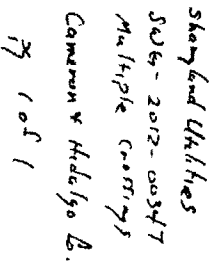 Sharyland Utilities
SWG-2012-00347
Multiple Crossings
Cameron & Hidalgo Co.
1 of 1